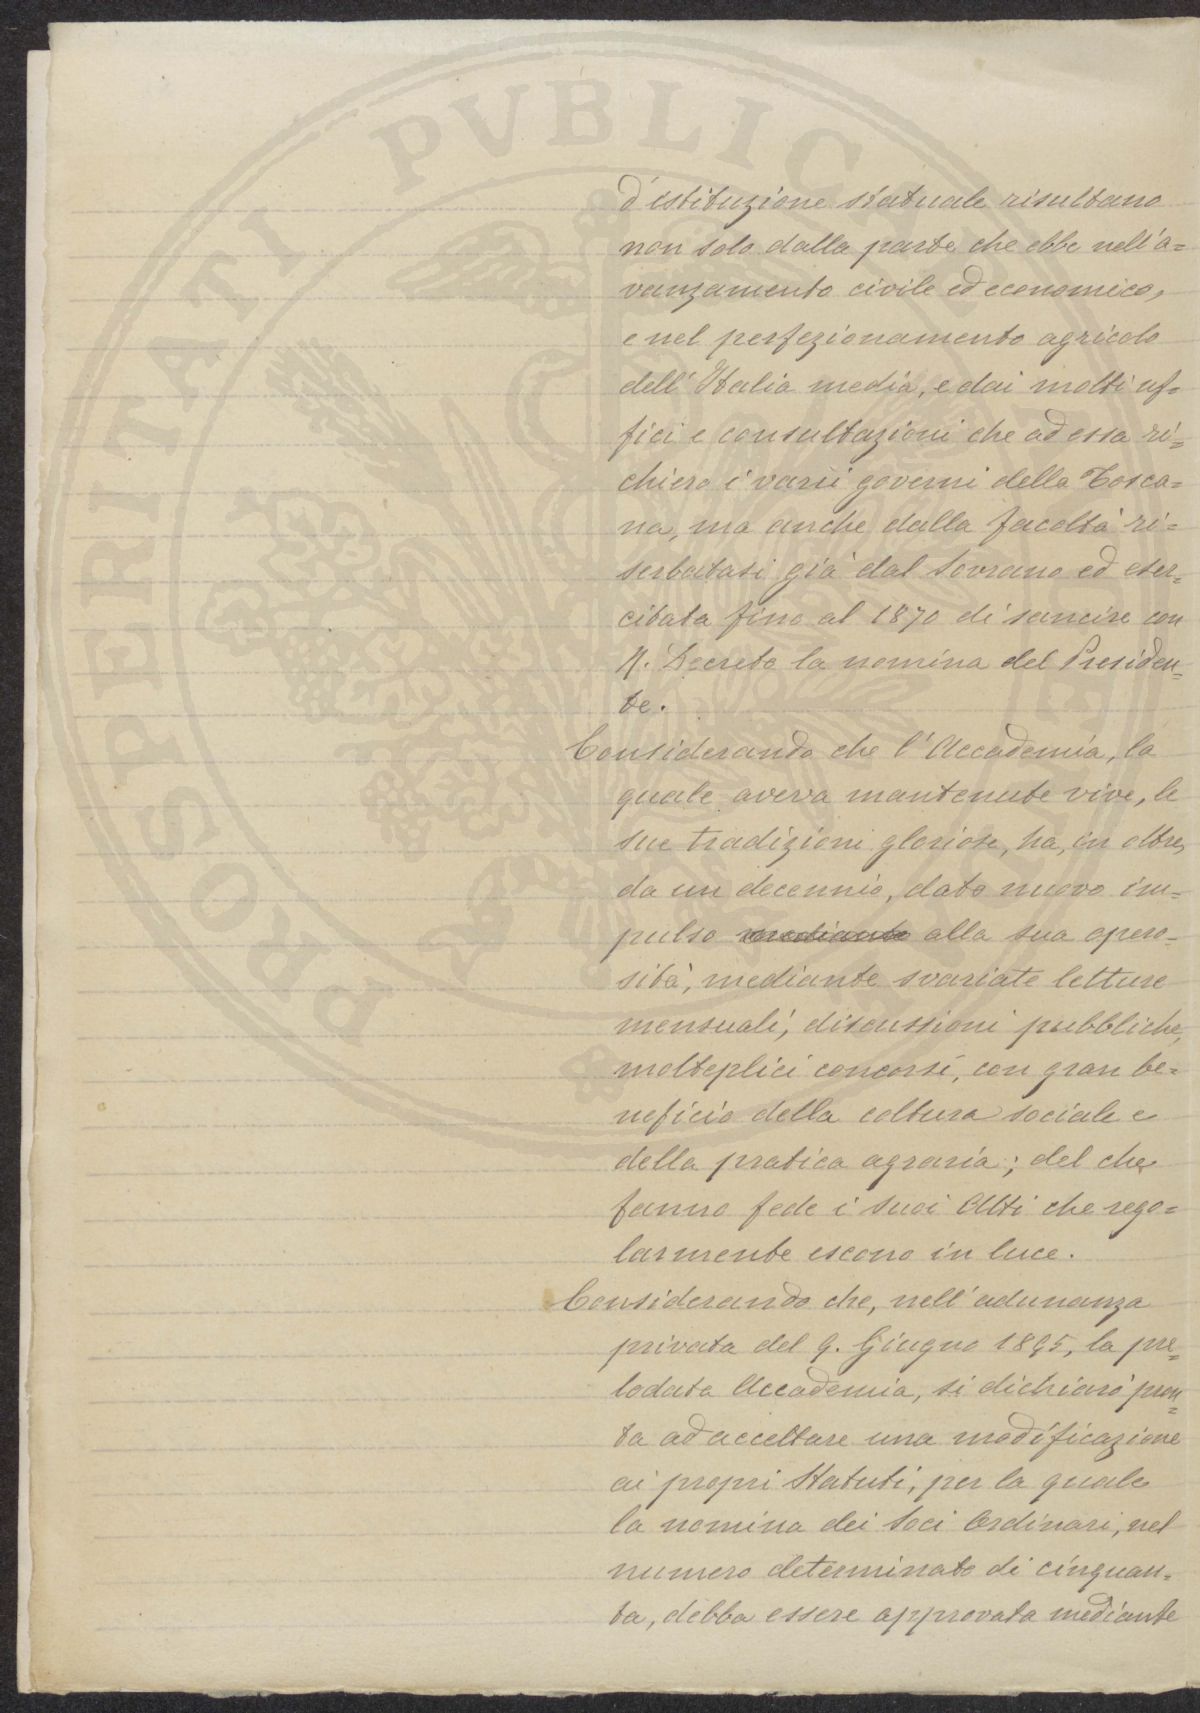 d'istituzione statuale risultano
non solo dalla parte che ebbe nell'a=
vanzamento civile ed economico,
e nel perfezionamento agricolo
dell'Italia media, e dai molti uf=
fici e consultazioni che ad essa ri=
chiero i varii governi della Tosca=
na, ma anche dalla facoltà ri=
serbatasi già dal Sovrano ed eser=
citata fino al 1870 di sancire con
R. Decreto la nomina del Presiden=
te.
Considerando che l'Accademia, la
quale aveva mantenute vive, le
sue tradizioni gloriose, ha, in oltre,
da un decennio, dato nuovo im=
pulso mediante alla sua opero=
sità, mediante svariate letture
mensuali, discussioni pubbliche,
molteplici concorsi, con gran be=
neficio della coltura sociale e
della pratica agraria; del che
fanno fede i suoi Atti che rego=
larmente escono in luce.
Considerando che, nell'adunanza
privata del 9. Giugno 1895, la pre=
lodata Accademia, si dichiarò pron=
ta ad accettare una modificazione
ai propri Statuti, per la quale
la nomina dei Soci Ordinari, nel
numero determinato di cinquan=
ta, debba essere approvata mediante
PROSPERITATI PVBLIC